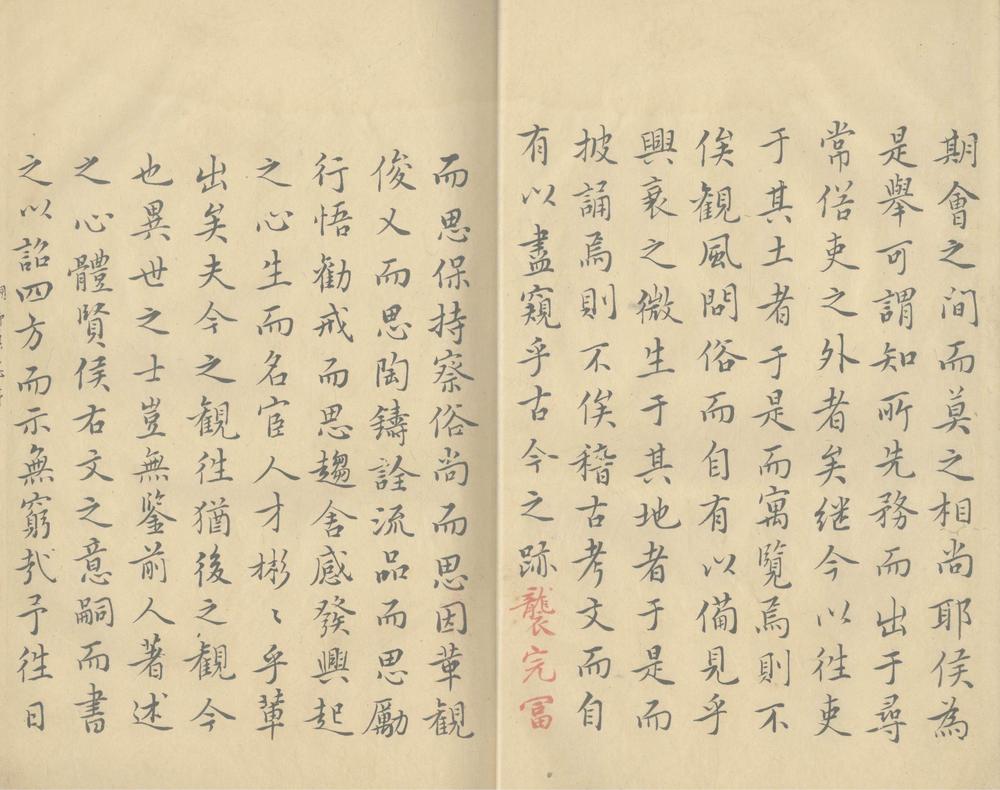 期會之间而莫之相尚耶侯為
是舉可謂知所先務而出于尋
常俗吏之外者矣继今以徃吏
于其土者于是而寓覽焉則不
俟觀風問俗而自有以備見乎
興衰之微生于其地者于是而
披誦焉則不俟稽古考文而自
有以盡窺乎古今之跡襲完冨
而思保持察俗尚而思因革觀
俊乂而思陶鑄詮流品而思勵
行悟勸戒而思趨舍感發興起
之心生而名宦人才彬〻乎輩
出矣夫今之觀徃猶後之觀今
也異世之士豈無鑒前人著述
之心體賢侯右文之意嗣而書
之以詔四方而示無窮㢤予徃日